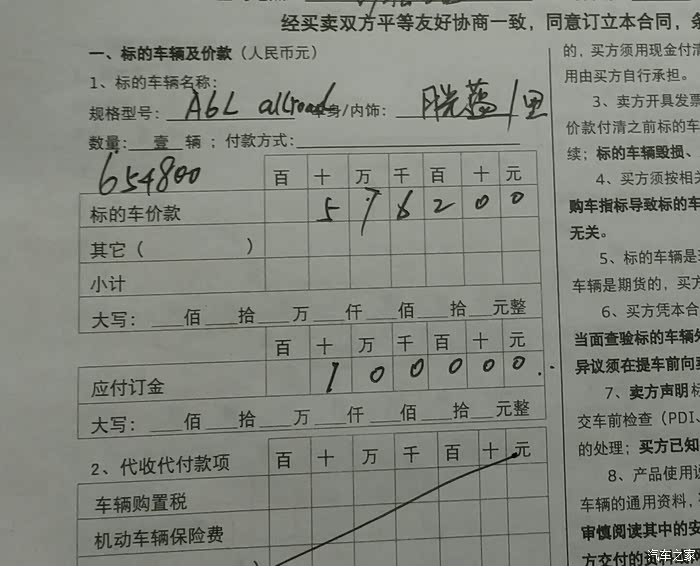 经买卖双方平等友好协商一致，同意订立本合同，
一、标的车辆及价款（人民币元）
1、标的车辆名称：
规格型号： A6L allroad 车身/内饰： 月光蓝/黑
数量： 壹 辆 ；付款方式：
654800
百 十 万 千 百 十 元
标的车价款 5 7 6 2 0 0
其它（ ）
小计
大写： 佰 拾 万 仟 佰 拾 元整
百 十 万 千 百 十 元
应付订金 1 0 0 0 0 0
大写： 佰 拾 万 仟 佰 拾 元整
2、代收代付款项 百 十 万 千 百 十 元
车辆购置税
机动车辆保险费
的，买方须用现金付清
用由买方自行承担。
3、卖方开具发票
价款付清之前标的车
续；标的车辆毁损、
4、买方须按相关
购车指标导致标的车
无关。
5、标的车辆是
车辆是期货的，买方
6、买方凭本合
当面查验标的车辆外
异议须在提车前向卖
7、卖方声明标
交车前检查（PDI、
的处理；买方已知
8、产品使用说
车辆的通用资料，
审慎阅读其中的安
方交付的资料
汽车之家